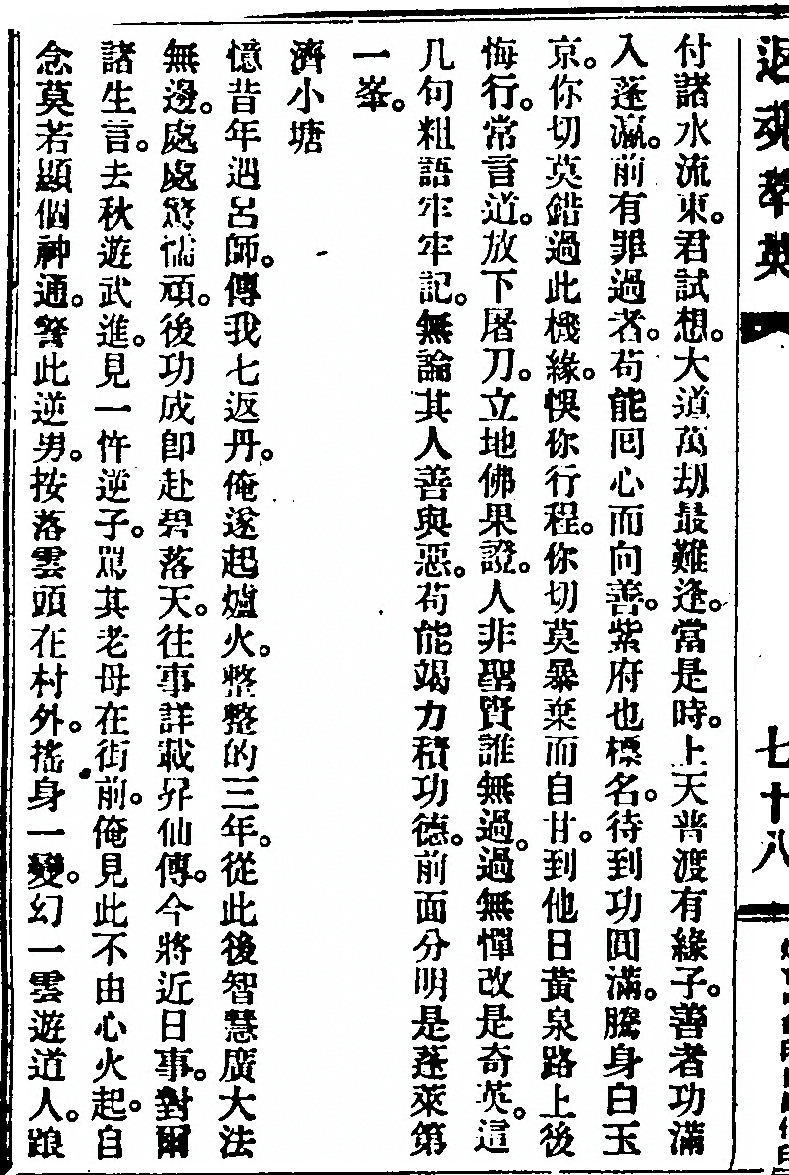 返魂奉英
七十八
付諸水流東。君試想。大道萬劫最難逢。當是時。上天普渡有緣子。善者功滿
入蓬瀛。前有罪過者。苟能囘心而向善。紫府也標名。待到功圓滿。騰身白玉
京。你切莫錯過此機緣。悞你行程。你切莫暴棄而自甘。到他日黃泉路上後
悔行。常言道。放下屠刀。立地佛果證。人非聖賢誰無過。過無憚改是奇英。這
几句粗語牢牢記。無論其人善與惡。苟能竭力積功德。前面分明是蓬萊第
一峯。
濟小塘
憶昔年遇呂師。傳我七返丹。俺遂起爐火。整整的三年。從此後智慧廣大法
無邊。處處驚懦頑。後功成卽赴碧落天。往事詳載昇仙傳。今將近日事。對爾
諸生言。去秋遊武進。見一忤逆子。罵其老母在街前。俺見此不由心火起。自
念莫若顯個神通。警此逆男。按落雲頭在村外。搖身一變。幻一雲遊道人。踉